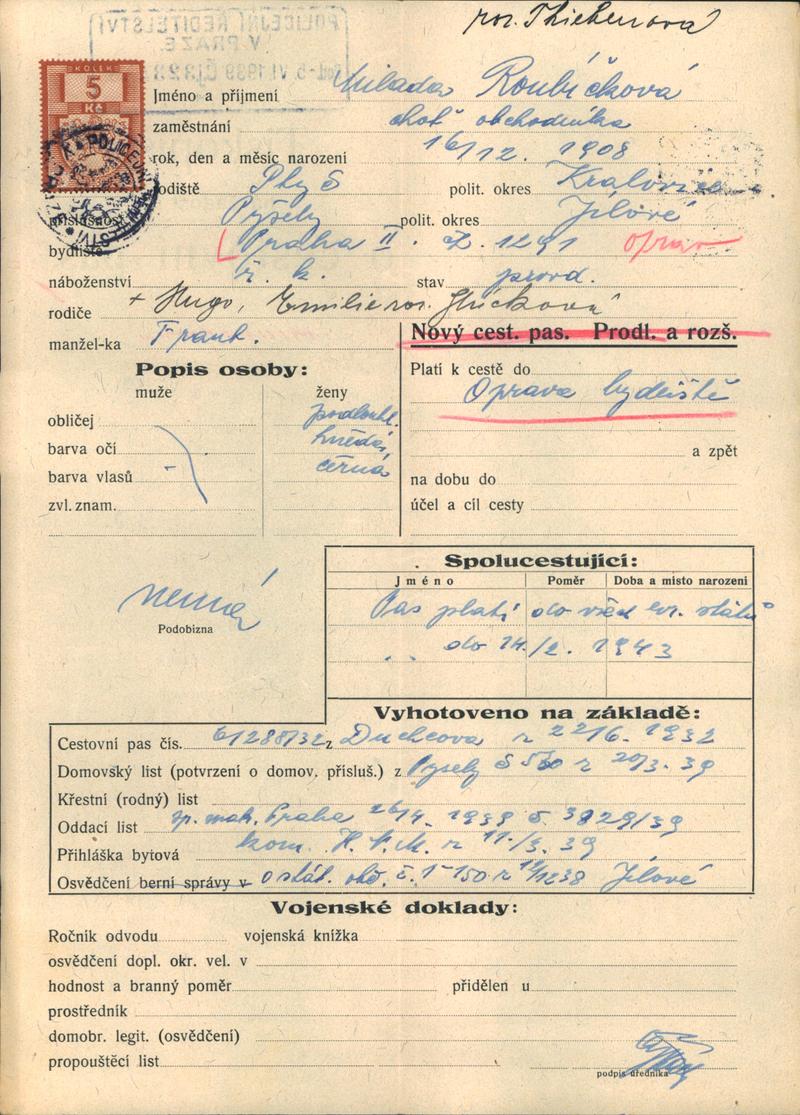 roz. Thiebenová
POLICEJNÍ ŘEDITELSTVÍ
V PRAZE
5. VI. 1939
KOLEK
5
Kč
Jméno a příjmení Milada Roubíčková
zaměstnání choť obchodníka
rok, den a měsíc narození 16/12. 1908
rodiště polit. okres Kralovice
příslušnost Pyšely polit. okres Jílové
bydliště Praha II. č. 1291 oprav
náboženství ř. k. stav provd.
rodiče + Hugo, Emilie roz. Glücková
manžel-ka Frant.
Nový cest. pas. Prodl. a rozš.
Popis osoby:
muže ženy
obličej podlouhl.
barva očí hnědá,
barva vlasů - černá
zvl. znam.
Platí k cestě do
Oprava bydliště
a zpět
na dobu do
účel a cíl cesty
nemá
Podobizna
Spolucestující:
Jméno Poměr Doba a místo narození
Pas platí do všech evr. států
do 14./2. 1943
Vyhotoveno na základě:
Cestovní pas čís. 61288/32 z Duchcova z 22/6. 1932
Domovský list (potvrzení o domov. přísluš.) z Pysely z 20/3. 39
Křestní (rodný) list
Oddací list Praha 26/4. 1939 č. 3829/39
Přihláška bytová kom. z 11./3. 39
Osvědčení berní správy v o stát. obč. č. 1-150 z Jílové
Vojenské doklady:
Ročník odvodu vojenská knížka
osvědčení dopl. okr. vel. v
hodnost a branný poměr přidělen u
prostředník
domobr. legit. (osvědčení)
propouštěcí list
podpis úředníka